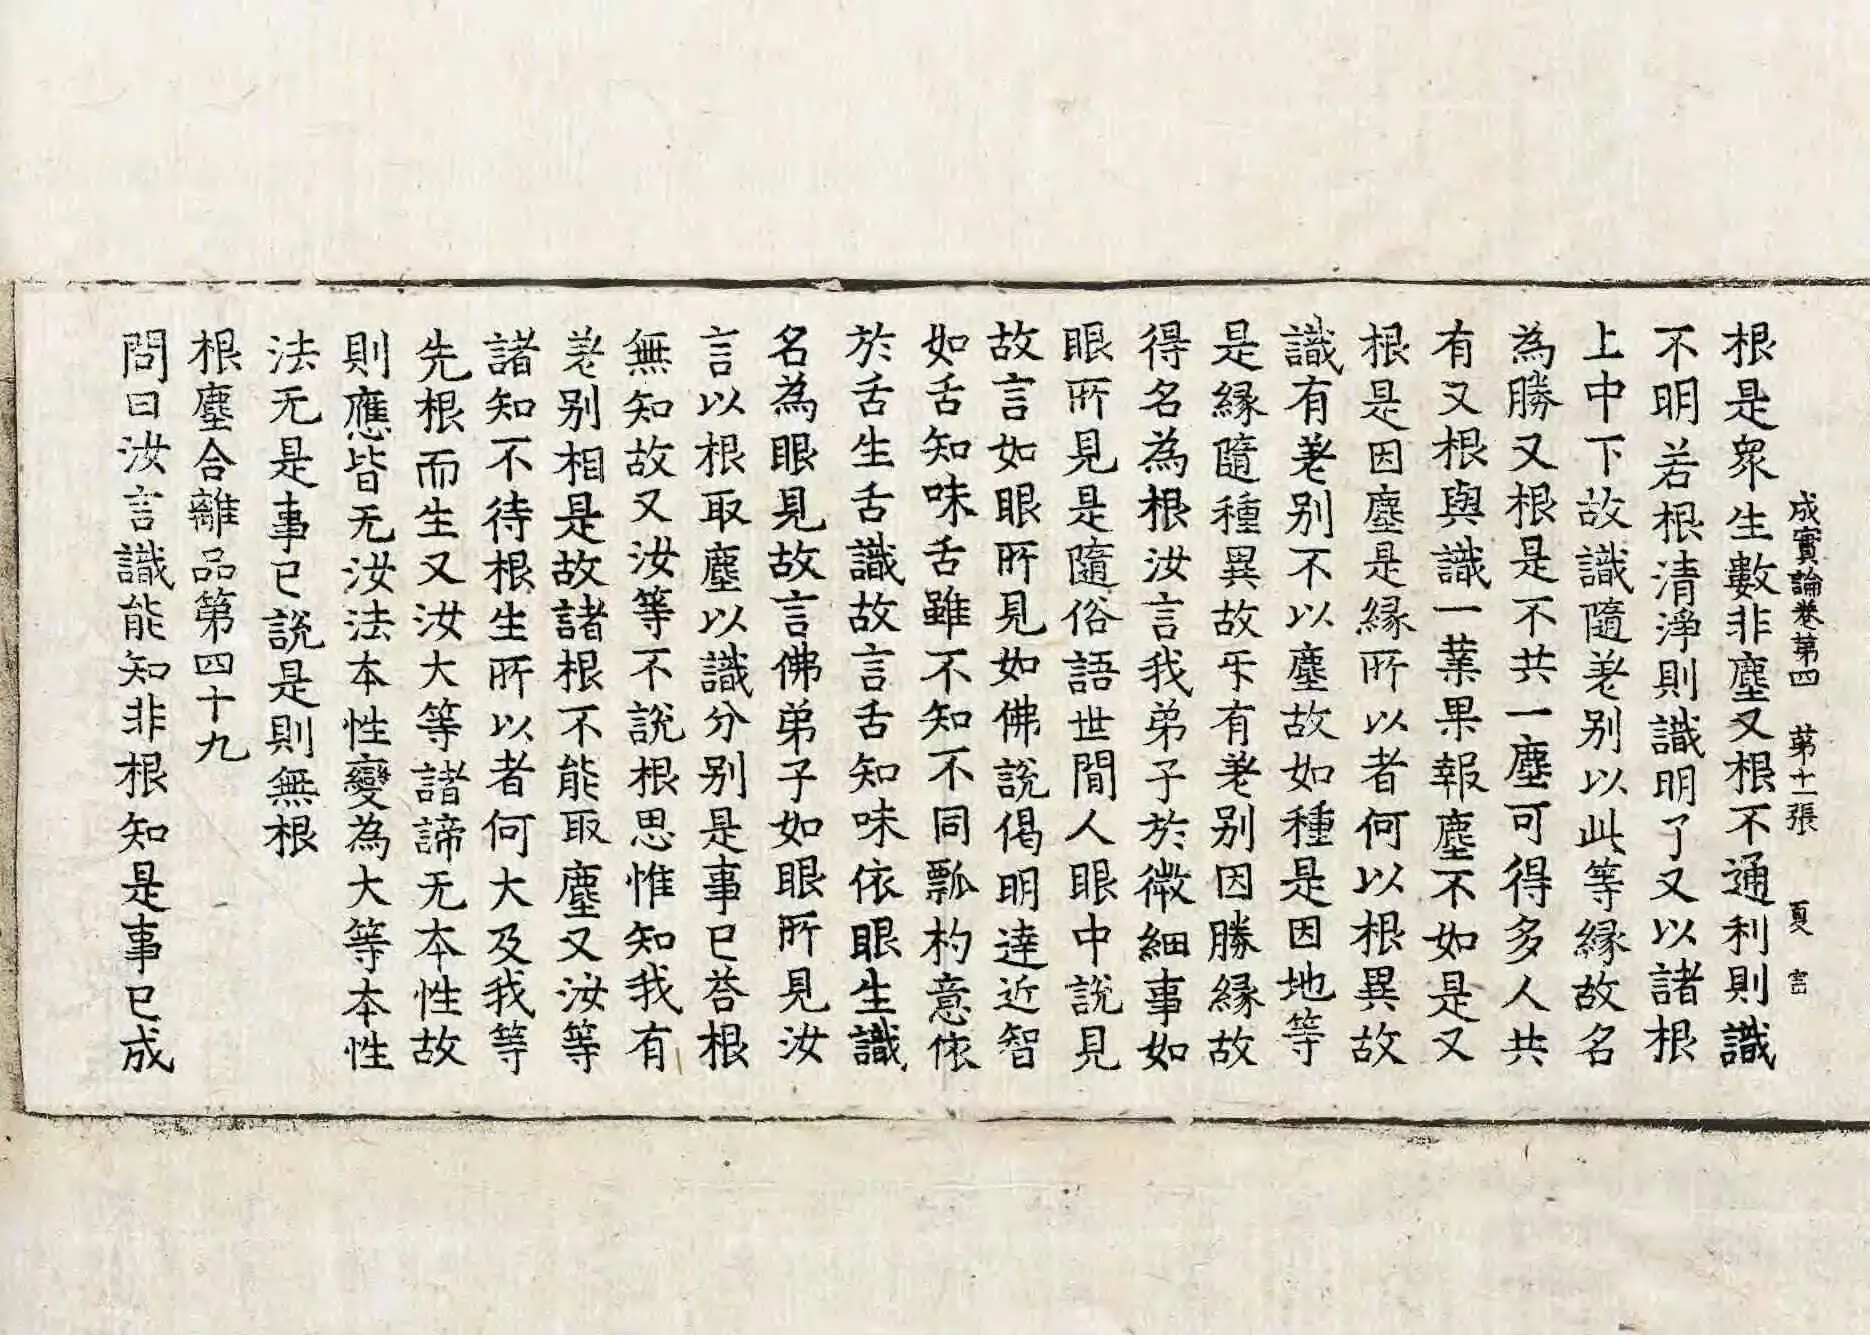 成實論卷第四　第十一張　頁　言
根是眾生數非塵又根不通利則識
不明若根清淨則識明了又以諸根
上中下故識隨差别以此等縁故名
為勝又根是不共一塵可得多人共
有又根與識一業果報塵不如是又
根是因塵是縁所以者何以根異故
識有差别不以塵故如種是因地等
是縁隨種異故㸦有差别因勝縁故
得名為根汝言我弟子於微細事如
眼所見是隨俗語世間人眼中說見
故言如眼所見如佛說偈明達近智
如舌知味舌雖不知不同瓢杓意依
於舌生舌識故言舌知味依眼生識
名為眼見故言佛弟子如眼所見汝
言以根取塵以識分别是事已荅根
無知故又汝等不說根思惟知我有
差别相是故諸根不能取塵又汝等
諸知不待根生所以者何大及我等
先根而生又汝大等諸諦无本性故
則應皆无汝法本性變為大等本性
法无是事已說是則無根
根塵合離品第四十九
問曰汝言識能知非根知是事已成